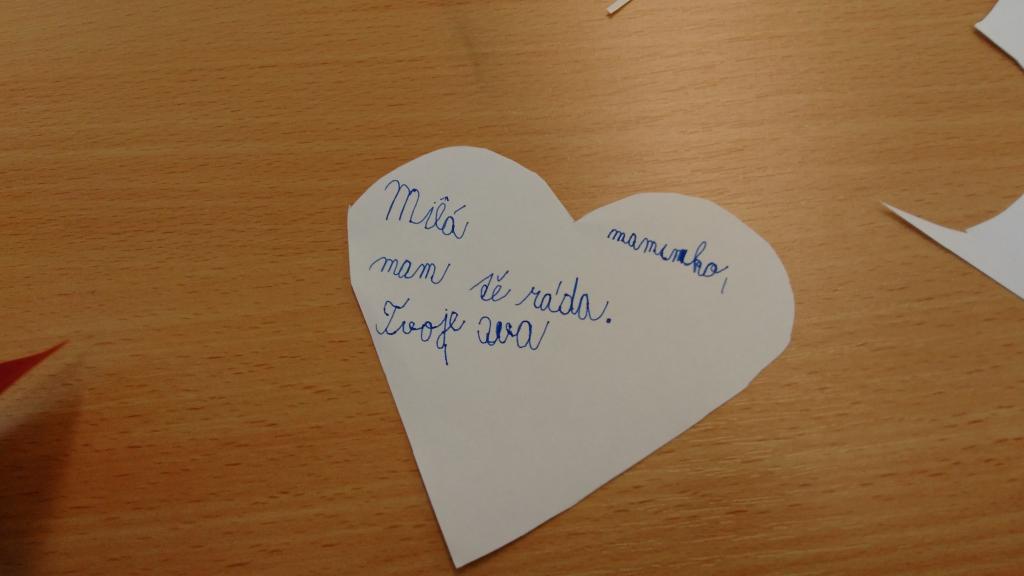 Milá maminko,
mam tě ráda.
Tvoje Eva